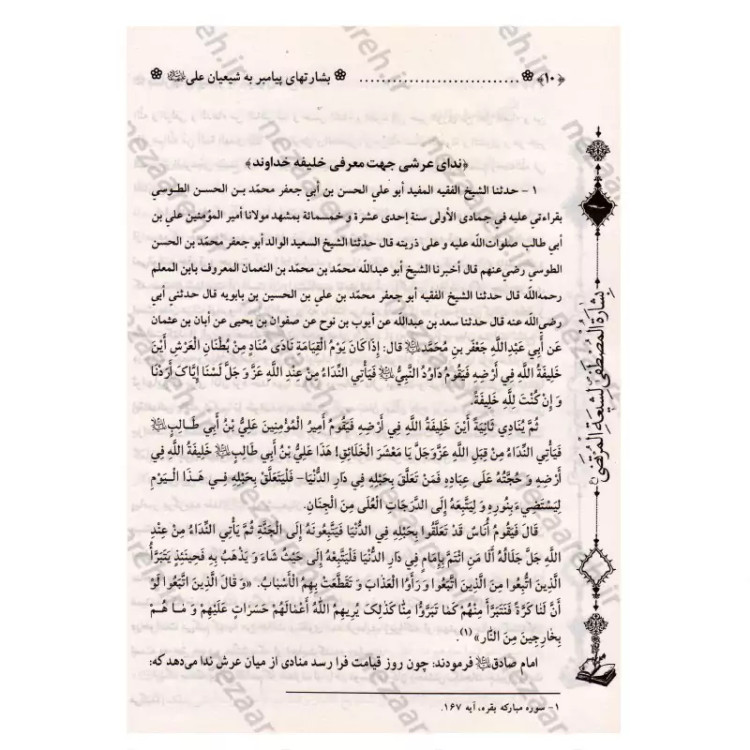 ﴿۱۰﴾ بشارتهای پیامبر به شیعیان علی
﴿ندای عرشی جهت معرفی خلیفه خداوند﴾
۱ - حدثنا الشيخ الفقيه المفيد أبو علي الحسن بن أبي جعفر محمّد بن الحسن الطوسي
بقراءتي عليه في جمادى الأولى سنة إحدى عشرة و خمسمائة بمشهد مولانا أمير المؤمنين علي بن
أبي طالب صلوات‌الله عليه و على ذريته قال حدثنا الشيخ السعيد الوالد أبو جعفر محمّد بن الحسن
الطوسي رضي‌عنهم قال أخبرنا الشيخ أبو عبدالله محمد بن محمد بن النعمان المعروف بابن المعلم
رحمه‌الله قال حدثنا الشيخ الفقيه أبو جعفر محمّد بن علي بن الحسين بن بابويه قال حدثني أبي
رضي‌الله عنه قال حدثنا سعد بن عبدالله عن أيوب بن نوح عن صفوان بن يحيى عن أبان بن عثمان
عَن أَبِي عَبْدِاللَّهِ جَعْفَرِ بْنِ مُحَمَّدٍ قال: إِذَا كَانَ يَوْمُ الْقِيَامَةِ نَادَى مُنَادٍ مِنْ بُطْنَانِ الْعَرْشِ أَيْنَ
خَلِيفَةُ اللَّهِ فِي أَرْضِهِ فَيَقُومُ دَاوُدُ النَّبِيُّ فَيَأْتِي النِّدَاءُ مِنْ عِنْدِ اللَّهِ عَزَّ وَ جَلَّ لَسْنَا إِيَّاكَ أَرَدْنَا
وَ إِنْ كُنْتَ لِلَّهِ خَلِيفَةً.
ثُمَّ يُنَادِي ثَانِيَةً أَيْنَ خَلِيفَةُ اللَّهِ فِي أَرْضِهِ فَيَقُومُ أَمِيرُ الْمُؤْمِنِينَ عَلِيُّ بْنُ أَبِي طَالِبٍ
فَيَأْتِي النِّدَاءُ مِنْ قِبَلِ اللَّهِ عَزَّوَجَلَّ يَا مَعْشَرَ الْخَلَائِقِ! هَذَا عَلِيُّ بْنُ أَبِي طَالِبٍ خَلِيفَةُ اللَّهِ فِي
أَرْضِهِ وَ حُجَّتُهُ عَلَى عِبَادِهِ فَمَنْ تَعَلَّقَ بِحَبْلِهِ فِي دَارِ الدُّنْيَا- فَلْيَتَعَلَّقْ بِحَبْلِهِ فِي هَذَا الْيَوْمِ
لِيَسْتَضِيءَ بِنُورِهِ وَ لْيَتَّبِعْهُ إِلَى الدَّرَجَاتِ الْعُلَى مِنَ الْجِنَانِ.
قَالَ فَيَقُومُ أُنَاسٌ قَدْ تَعَلَّقُوا بِحَبْلِهِ فِي الدُّنْيَا فَيَتَّبِعُونَهُ إِلَى الْجَنَّةِ ثُمَّ يَأْتِي النِّدَاءُ مِنْ عِنْدِ
اللَّهِ جَلَّ جَلَالُهُ أَلَا مَنِ ائْتَمَّ بِإِمَامٍ فِي دَارِ الدُّنْيَا فَلْيَتَّبِعْهُ إِلَى حَيْثُ شَاءَ وَ يَذْهَبُ بِهِ فَحِينَئِذٍ يَتَبَرَّأُ
الَّذِينَ اتُّبِعُوا مِنَ الَّذِينَ اتَّبَعُوا وَ رَأَوُا الْعَذَابَ وَ تَقَطَّعَتْ بِهِمُ الْأَسْبَابُ. «وَ قَالَ الَّذِينَ اتَّبَعُوا لَوْ
أَنَّ لَنَا كَرَّةً فَنَتَبَرَّأَ مِنْهُمْ كَمَا تَبَرَّؤُا مِنَّا كَذَلِكَ يُرِيهِمُ اللَّهُ أَعْمَالَهُمْ حَسَرَاتٍ عَلَيْهِمْ وَ مَا هُمْ
بِخَارِجِينَ مِنَ النَّارِ»(۱).
امام صادق فرمودند: چون روز قیامت فرا رسد منادی از میان عرش ندا می‌دهد که:
۱- سوره مبارکه بقره، آیه ۱۶۷.
بِشَارَةُ الْمُصْطَفَى لِشِيعَةِ الْمُرْتَضَى
nezaareh.ir